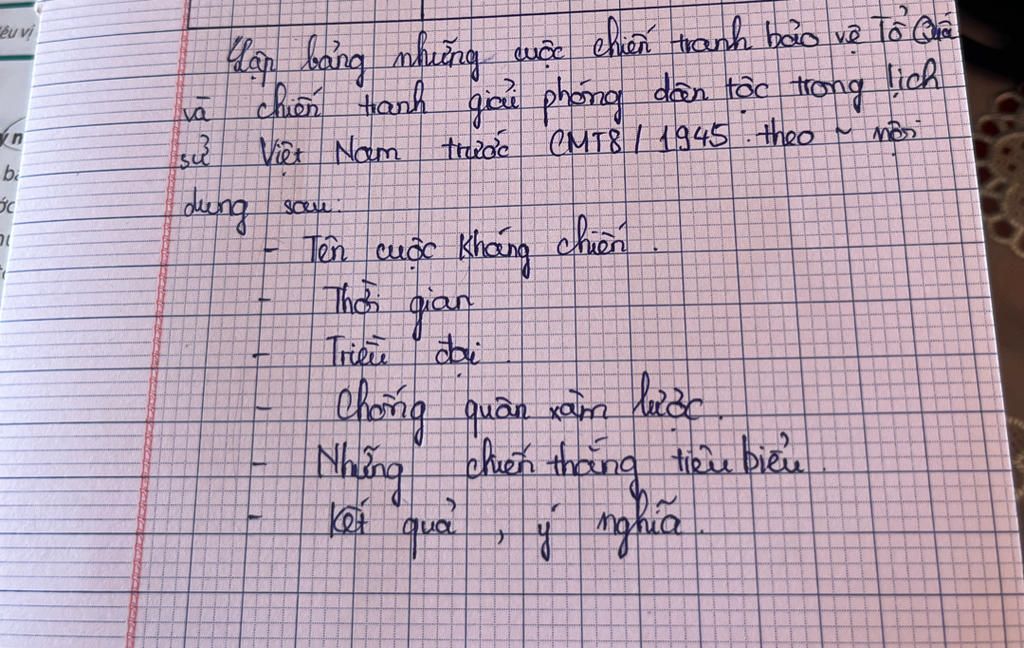 Lập bảng những cuộc chiến tranh bảo vệ Tổ Quốc
và chiến tranh giải phóng dân tộc trong lịch
sử Việt Nam trước CMT8/1945 theo ~ nội
dung sau:
- Tên cuộc kháng chiến.
- Thời gian
- Triều đại
- Chống quân xâm lược.
- Những chiến thắng tiêu biểu.
- Kết quả, ý nghĩa.